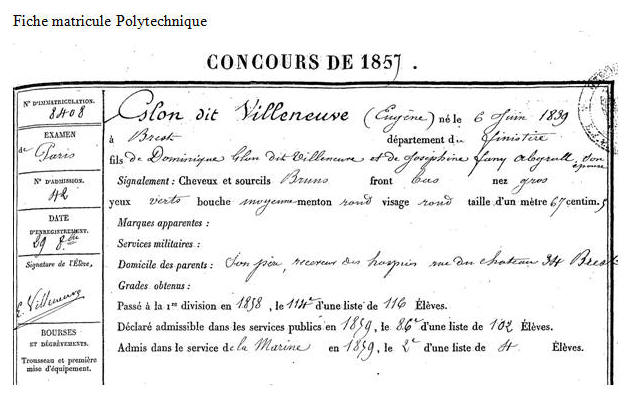 Fiche matricule Polytechnique
CONCOURS DE 1857.
N° D'IMMATRICULATION.
8408
EXAMEN
de Paris
N° D'ADMISSION.
42
DATE
D'ENREGISTREMENT.
29 8bre
Signature de l'Élève,
E. Villeneuve
BOURSES
ET DÉGRÈVEMENTS.
Trousseau et première
mise d'équipement.
Glon dit Villeneuve (Eugène) né le 6 Juin 1839
à Brest département du Finistère
fils de Dominique Glon dit Villeneuve et de Joséphine Fany son épouse
Signalement : Cheveux et sourcils Bruns front bas nez gros
yeux verts bouche moyenne menton rond visage rond taille d'un mètre 67 centim. 5
Marques apparentes :
Services militaires :
Domicile des parents : Son père, receveur des hospices rue du chateau 34 Brest
Grades obtenus :
Passé à la 1re division en 1858, le 114e d'une liste de 116 Élèves.
Déclaré admissible dans les services publics en 1859, le 86e d'une liste de 102 Élèves.
Admis dans le service de la Marine en 1859, le 2e d'une liste de 4 Élèves.